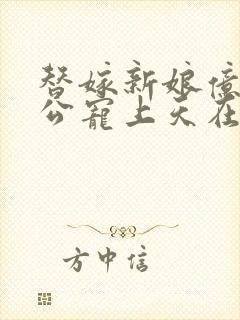 替嫁新娘億
公寵上天在
方中信